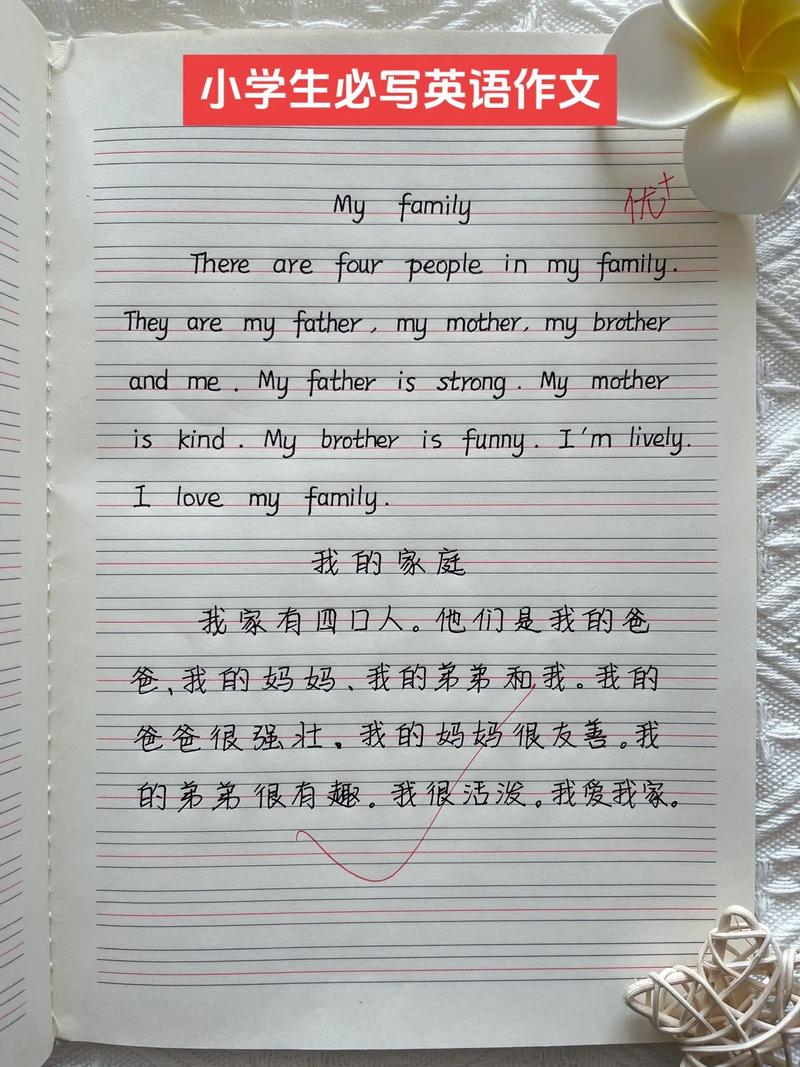 小学生必写英语作文
My family
优+
There are four people in my family.
They are my father, my mother, my brother
and me. My father is strong. My mother
is kind. My brother is funny. I'm lively.
I love my family.
我的家庭
我家有四口人。他们是我的爸
爸、我的妈妈、我的弟弟和我。我的
爸爸很强壮。我的妈妈很友善。我
的弟弟很有趣。我很活泼。我爱我家。